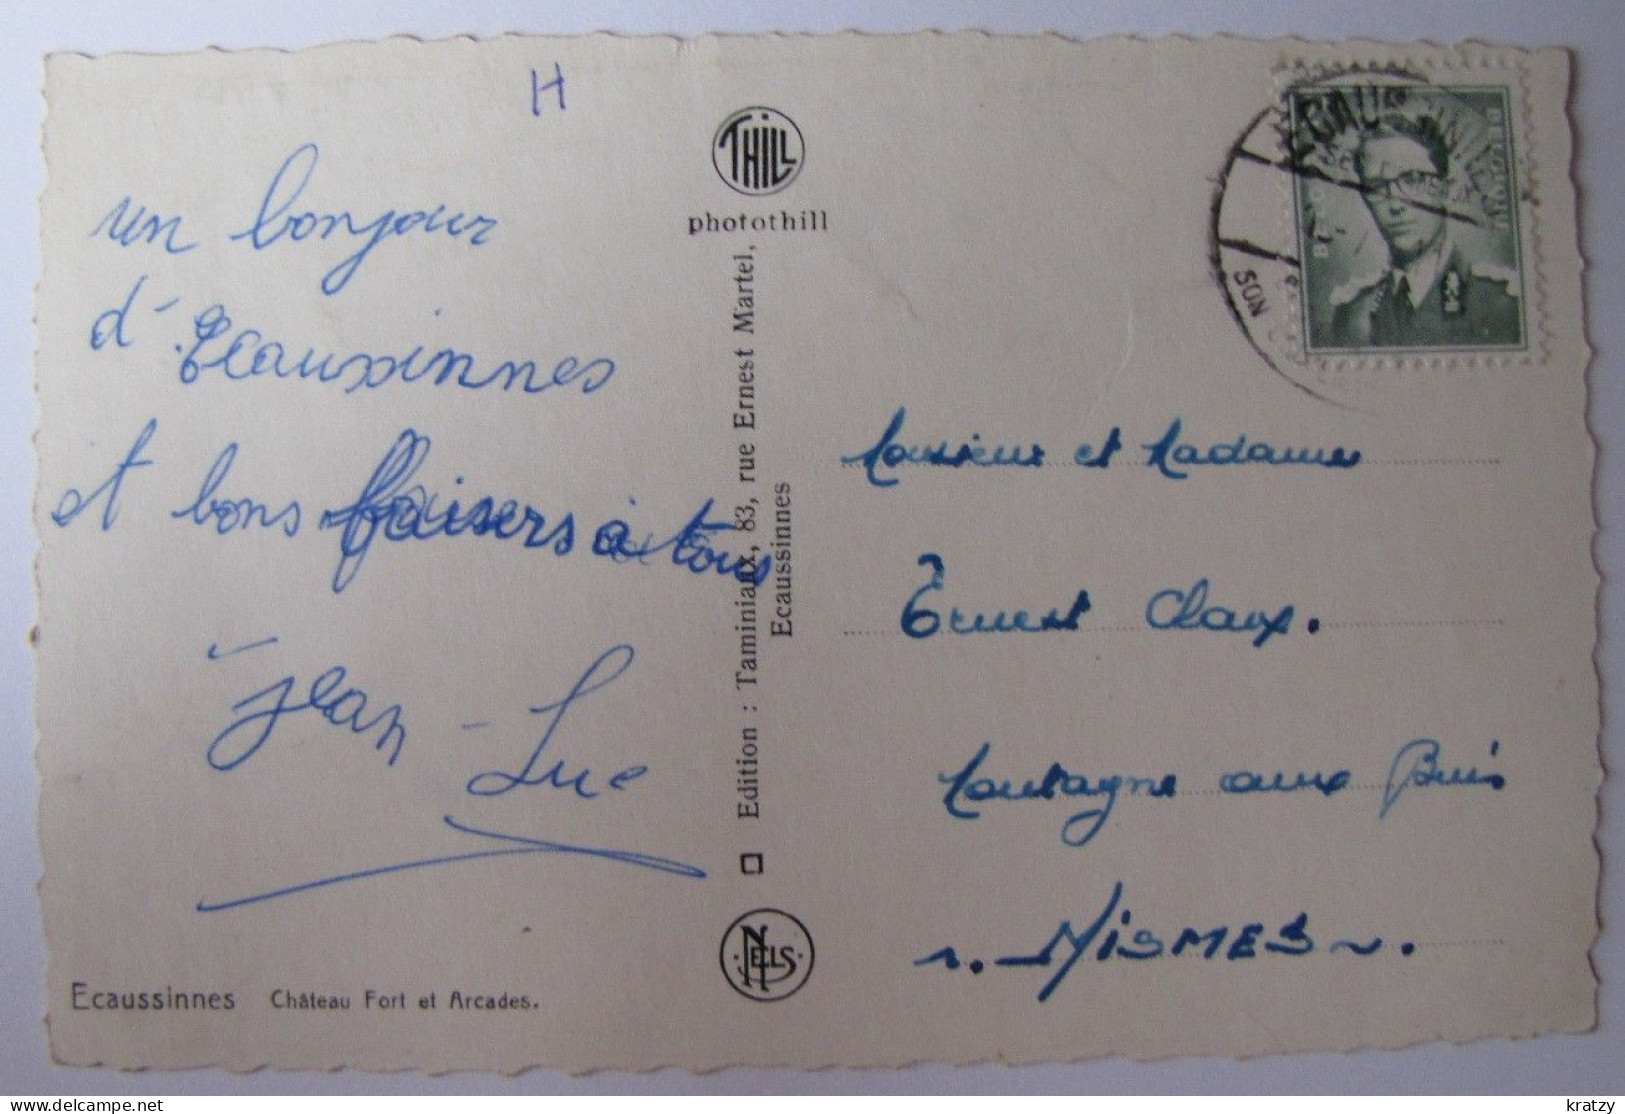 H
un bonjour
d'Ecaussinnes
et bons baisers à tous
Jean-Luc
Ecaussinnes Château Fort et Arcades.
THILL
photothill
Edition : Taminiaux, 83, rue Ernest Martel,
Ecaussinnes
NELS
SON
Monsieur et Madame
Ernest Claux.
Montagne aux Buis
NISMES
delcampe.net
kratzy